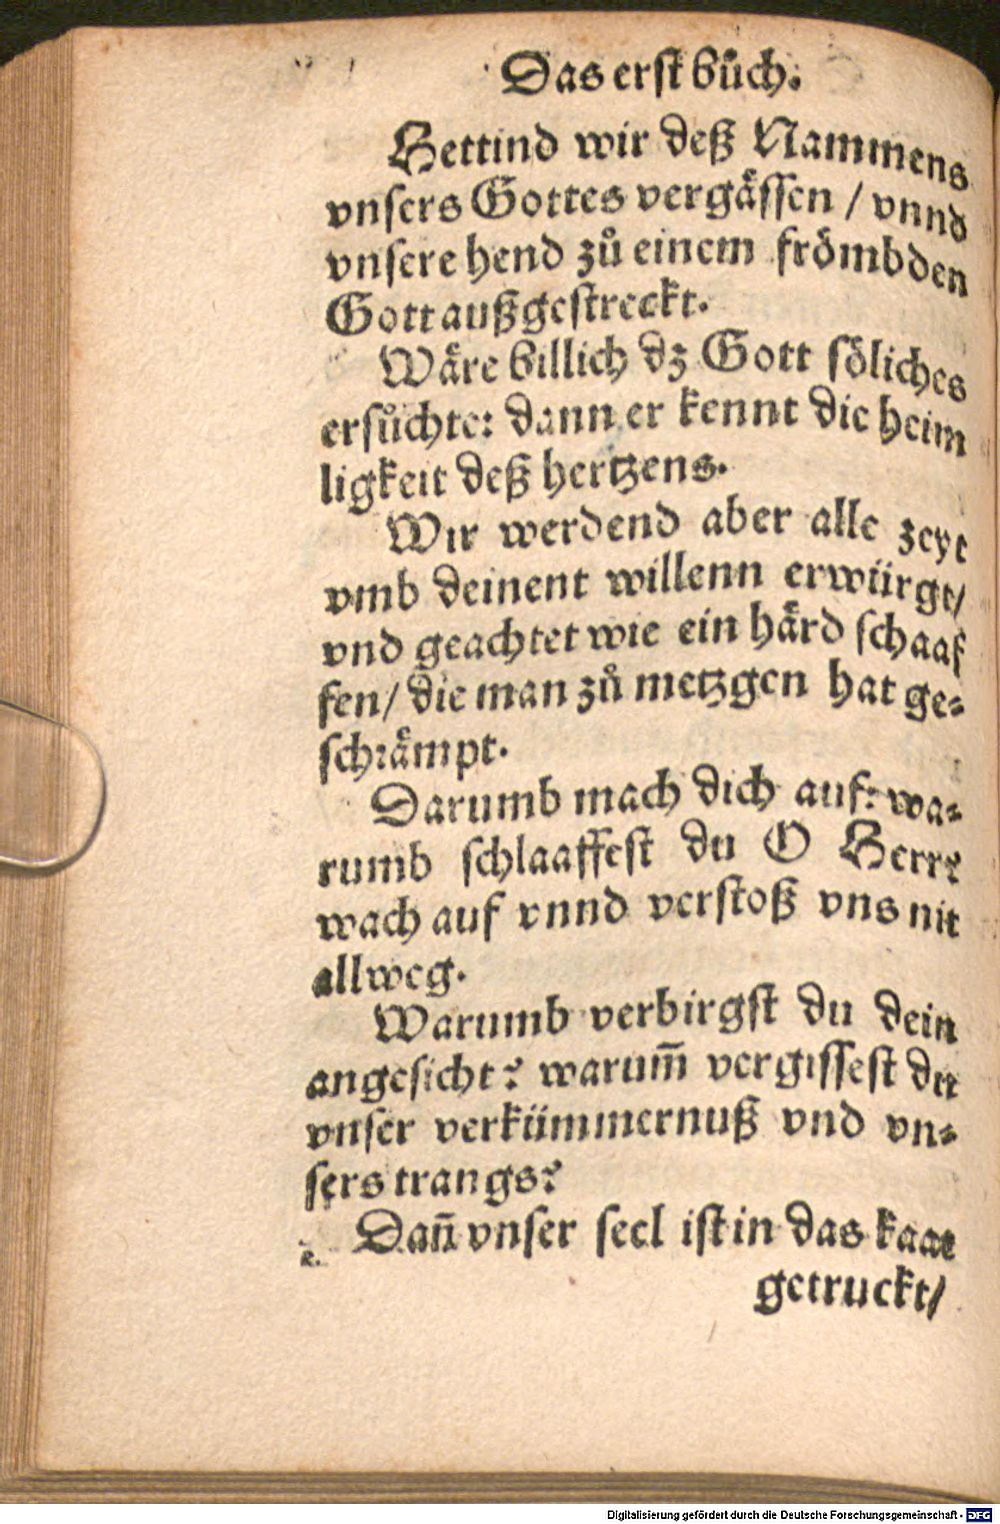 Das erst bůch.
Hettind wir deß Nammens
vnsers Gottes vergässen / vnnd
vnsere hend zů einem frömbden
Gott außgestreckt.
Wäre billich dz Gott söliches
ersůchte: dann er kennt die heim
ligkeit deß hertzens.
Wir werdend aber alle zeyt
vmb deinent willenn erwürgt/
vnd geachtet wie ein härd schaaf
fen/ die man zů metzgen hat ge-
schrämpt.
Darumb mach dich auf: wa-
rumb schlaaffest du O Herr?
wach auf vnnd verstoß vns nit
allweg.
Warumb verbirgst du dein
angesicht? warum̃ vergissest du
vnser verkümmernuß vnd vn-
sers trangs?
Dañ vnser seel ist in das kaat
getruckt/
Digitalisierung gefördert durch die Deutsche Forschungsgemeinschaft - DFG